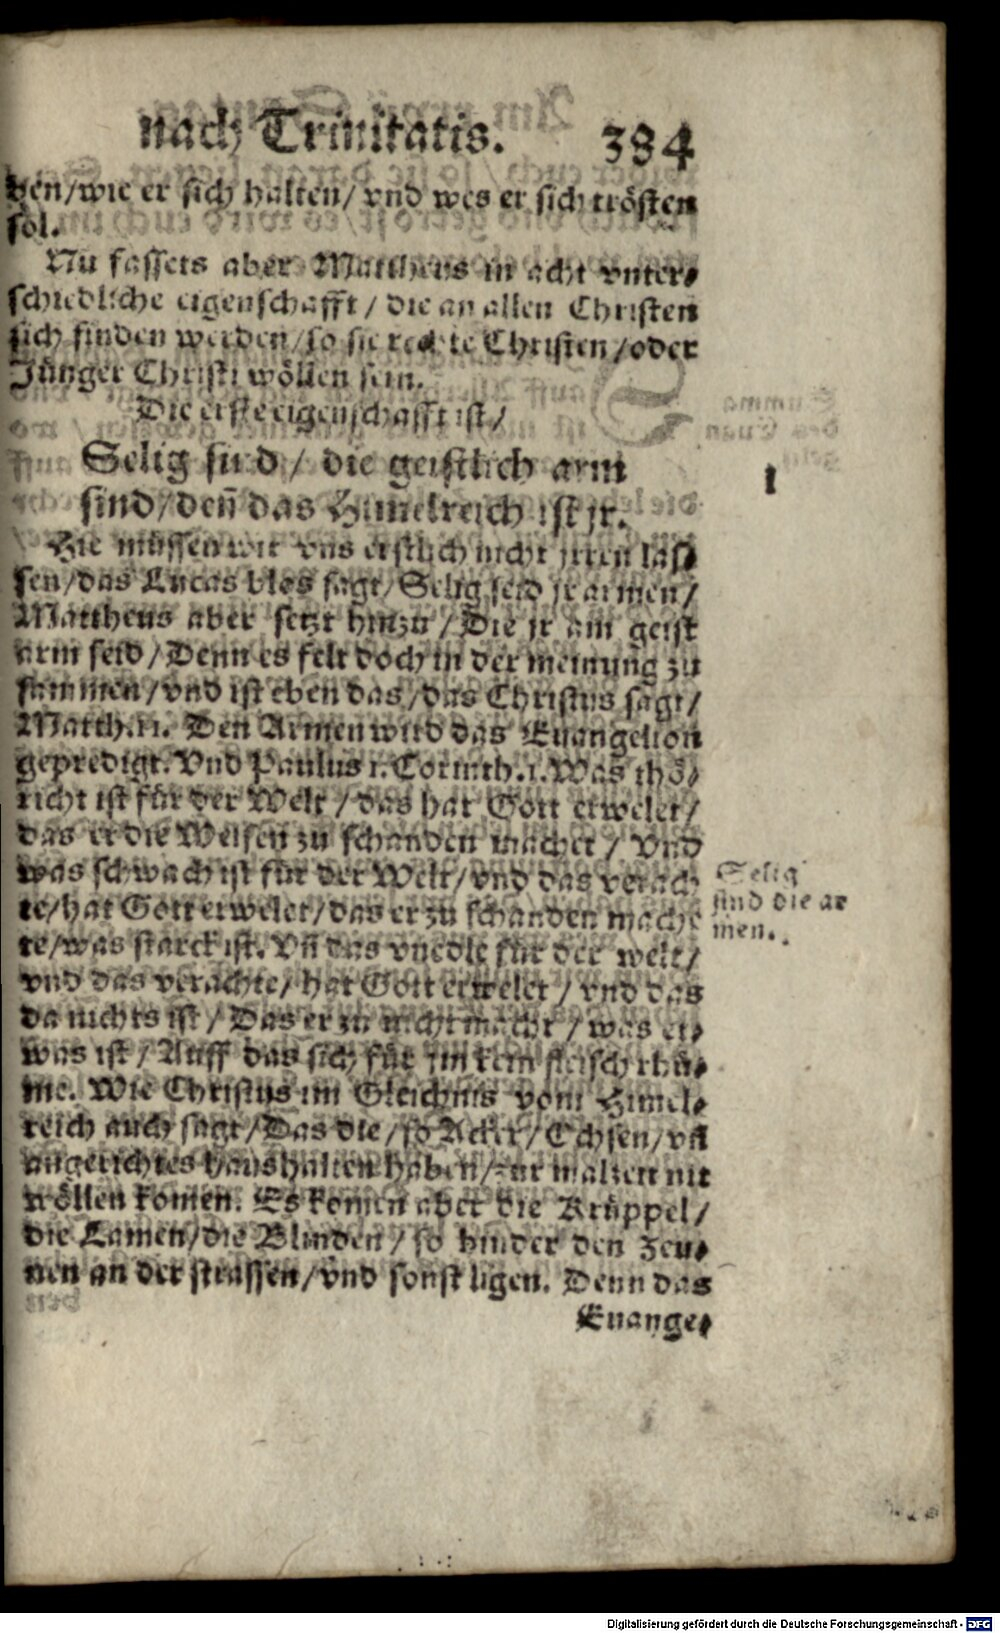 nach Trinitatis. 384
hen/wie er sich halten/ vnd wes er sich trösten
sol.
Nu fassets aber Mattheus in acht vnter⸗
schiedliche eigenschafft / die an allen Christen
sich finden werden/so sie rechte Christen/oder
Jünger Christi wöllen sein.
Die erste eigenschafft ist/
Selig sind / die geistlich arm
sind/deñ das Himelreich ist jr.
1
Hie müssen wir vns erstlich nicht jrren las⸗
sen/das Lucas blos sagt/Selig seid jr armen/
Mattheus aber setzt hinzu / Die jr am geist
arm seid / Denn es felt doch in der meinung zu
sammen/vnd ist eben das/das Christus sagt/
Matth.11. Den Armen wird das Euangelion
gepredigt. Vnd Paulus 1. Corinth.1. Was thö⸗
richt ist für der Welt / das hat Gott erwelet/
das er die Weisen zu schanden machet / Vnd
was schwach ist für der Welt/vnd das verach
te/hat Gott erwelet/das er zu schanden mache
te/was starck ist. Vñ das vnedle für der welt/
vnd das verachte/ hat Gott erwelet / vnd das
da nichts ist / Das er zu nicht macht / was et⸗
was ist / Auff das sich für jm kein fleisch rhü⸗
me. Wie Christus im Gleichnis vom Himel⸗
reich auch sagt/Das die/so Acker/Ochsen/vñ
angerichtes haushalten haben/zur malzeit nit
wöllen komen. Es komen aber die Krüppel/
die Lamen/die Blinden / so hinder den Zeu⸗
nen an der strassen/vnd sonst ligen. Denn das
Euange⸗
Selig
sind die ar
men.
Digitalisierung gefördert durch die Deutsche Forschungsgemeinschaft - DFG